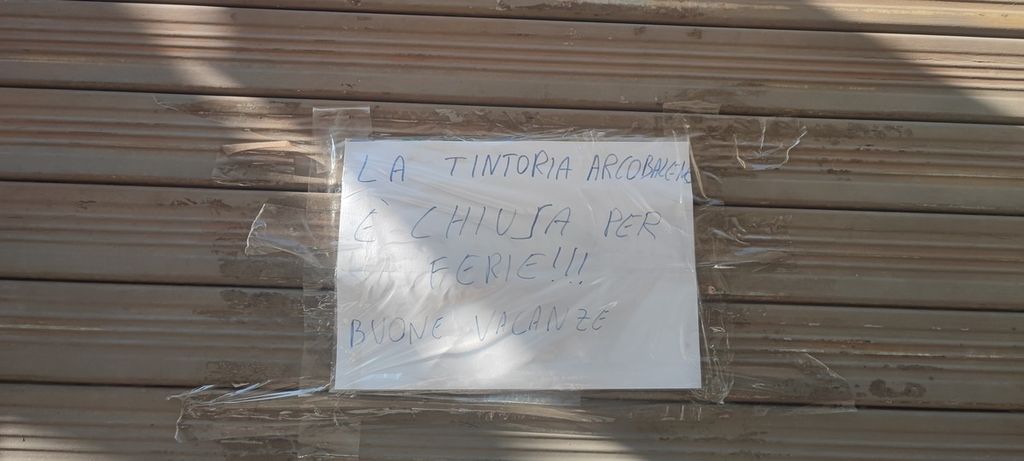 LA TINTORIA ARCOBALENO
È CHIUSA PER
LA FERIE!!!
BUONE VACANZE